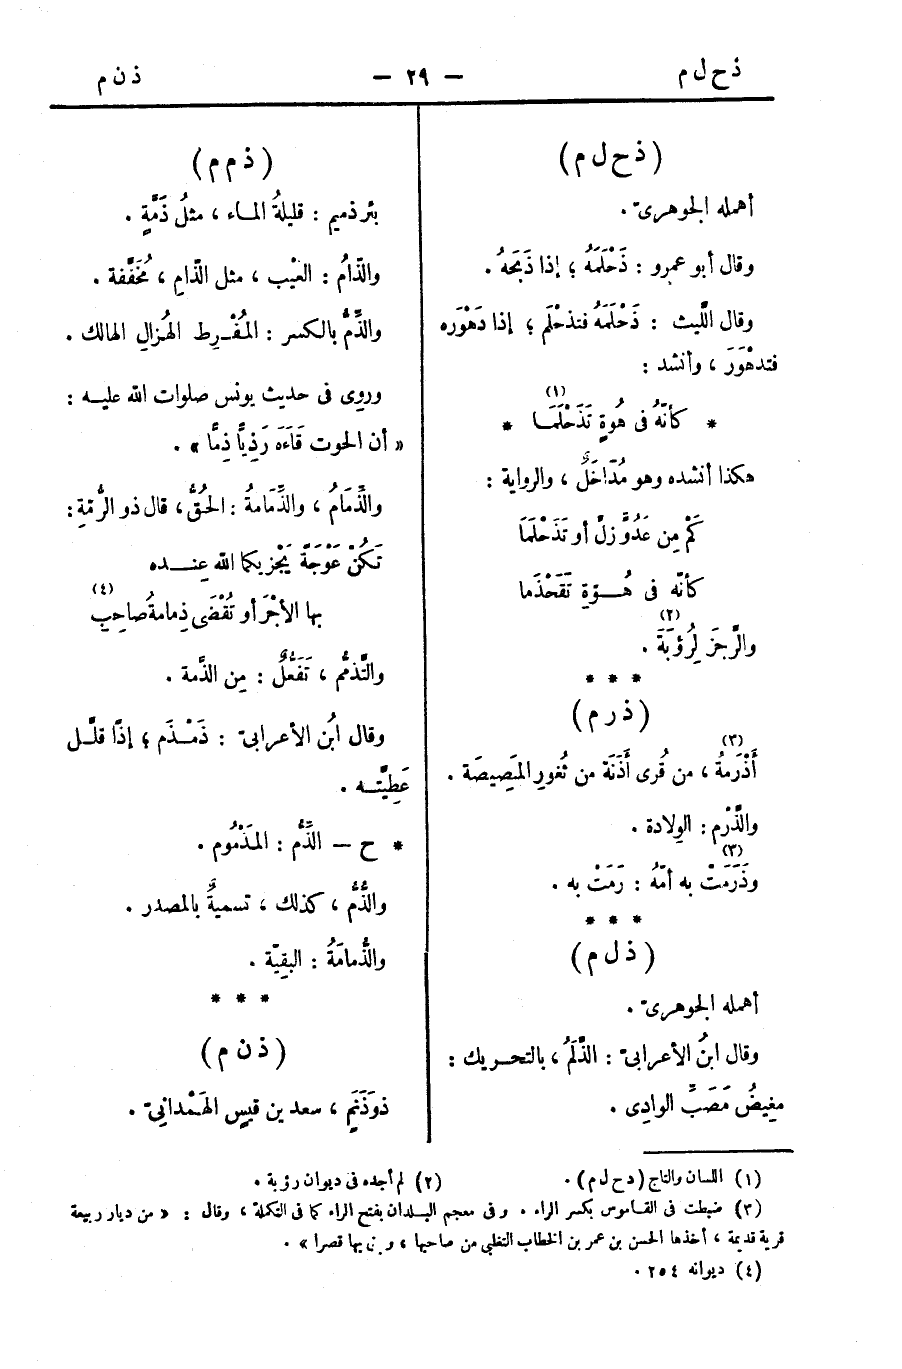 ذ ح ل م — ٢٩ — ذ ن م
(ذ ح ل م)
أهمله الجوهرىّ .
وقال أبو عمرو : ذَحْلَمَهُ ؛ إذا ذَبَحَهُ .
وقال اللَّيث : ذَحْلَمَهُ فتذحْلَم ؛ إذا دَهْوَره
فتدهْوَرَ ، وأنشد :
* كأنّهُ فى هُوةٍ تَذَحْلَمَا (١) *
هكذا أنشده وهو مُدَاخَلٌ ، والرواية :
كَمْ مِن عَدُوٍّ زلَّ أو تَذَحْلَمَا
كأنّه فى هُــوّةٍ تَقَحْذَما
والرَّجَز لِرُؤبَةَ (٢) .
* * *
(ذ ر م)
أَذْرَمَةُ (٣) ، من قُرى أَذَنَة من ثُغورِ المَصِيصَة .
والذَّرْم : الوِلادة .
وذَرَمَتْ (٣) به أمّهُ : رَمَتْ به .
* * *
(ذ ل م)
أهمله الجوهرىّ .
وقال ابنُ الأعرابىّ : الذَّلَمُ ، بالتحريك :
مغِيضُ مَصَبّ الوادِى .
(ذ م م)
بئر ذميم : قليلةُ الماء ، مثلُ ذَمَّةٍ .
والذّامُ : العَيْب ، مثل الذّامِ ، مُخَفَّفة .
والذِّمُّ بالكسر : المُفْـرِط الهُزالِ الهالك .
وروِى فى حديث يونس صلوات الله عليه :
« أن الحوت قَاءَه رَذِيًّا ذِمًّا » .
والذِّمَامُ ، والذِّمَامةُ : الحُقُّ ، قال ذو الرُّمّةِ :
تَكُنْ عَوْجَةً يَجْزِيكما الله عِنـــده
بها الأجْرَ أو تُقْضَى ذِمامةُ صاحِبِ (٤)
والتَّذمُّم ، تَفَعُّلٌ : مِن الذَّمة .
وقال ابُن الأعرابىّ : ذَمْـذَم ؛ إذَا قلَّـل
عَطِيَّتــه .
* ح — الذِّمُّ : المَذْمُوم .
والذُّمُّ ، كذلك ، تسميةٌ بالمصدر .
والذُّمامَةُ : البقِيّة .
* * *
(ذ ن م)
ذو ذَنَمٍ ، سعد بن قيسٍ الهَمْدانِىّ .
(١) اللسان والتاج (دحلم) .
(٢) لم أجده فى ديوان رؤبة .
(٣) ضبطت فى القاموس بكسر الراء . وفى معجم البلدان بفتح الراء كما فى التكملة ، وقال : « من ديار ربيعة
قرية قديمة ، أخذها الحسن بن عمر بن الخطاب التغلبى من صاحبها ، وبنى بها قصرا » .
(٤) ديوانه ٢٥٤ .